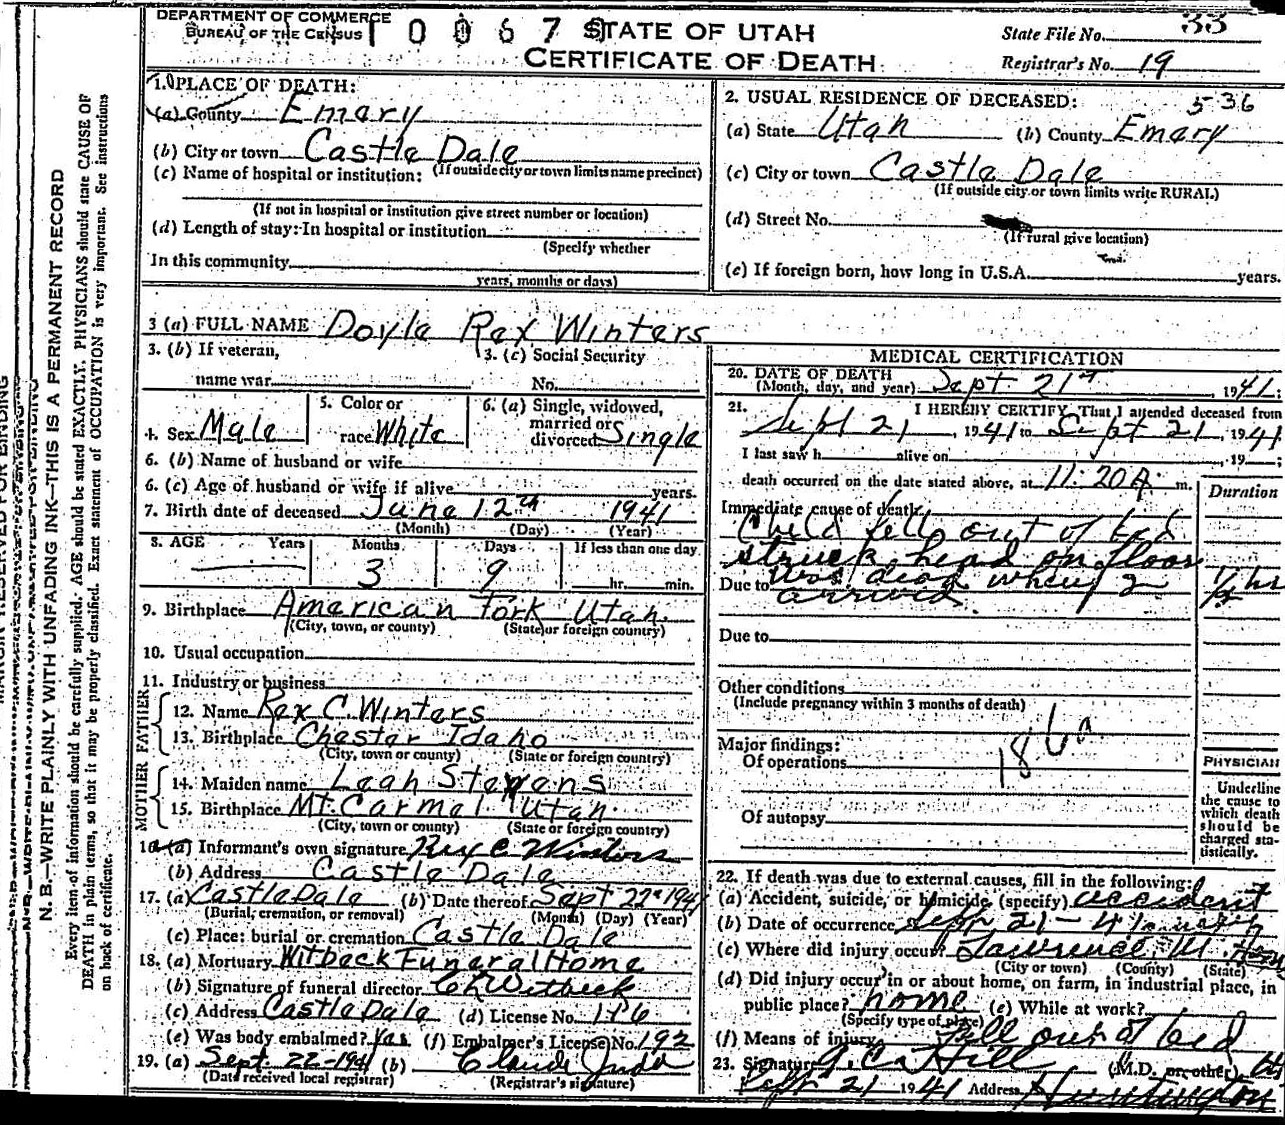 DEPARTMENT OF COMMERCE
BUREAU OF THE CENSUS
0067
STATE OF UTAH
CERTIFICATE OF DEATH
State File No. 33
Registrar's No. 19
N. B.—WRITE PLAINLY WITH UNFADING INK—THIS IS A PERMANENT RECORD
Every item of information should be carefully supplied. AGE should be stated EXACTLY. PHYSICIANS should state CAUSE OF
DEATH in plain terms, so that it may be properly classified. Exact statement of OCCUPATION is very important. See instructions
on back of certificate.
1. PLACE OF DEATH:
(a) County Emary
(b) City or town Castle Dale
(c) Name of hospital or institution: (If outside city or town limits name precinct)
(If not in hospital or institution give street number or location)
(d) Length of stay: In hospital or institution
(Specify whether
In this community
years, months or days)
2. USUAL RESIDENCE OF DECEASED: 536
(a) State Utah (b) County Emary
(c) City or town Castle Dale
(If outside city or town limits write RURAL)
(d) Street No.
(If rural give location)
(e) If foreign born, how long in U.S.A. years.
3 (a) FULL NAME Doyle Rex Winters
3. (b) If veteran,
name war
3. (c) Social Security
No.
4. Sex Male
5. Color or
race White
6. (a) Single, widowed,
married or
divorced Single
6. (b) Name of husband or wife
6. (c) Age of husband or wife if alive years.
7. Birth date of deceased June 12th 1941
(Month) (Day) (Year)
8. AGE Years Months Days If less than one day
3 9 hr. min.
9. Birthplace American Fork Utah
(City, town, or county) (State or foreign country)
10. Usual occupation
11. Industry or business
FATHER
12. Name Rex C. Winters
13. Birthplace Chester Idaho
(City, town or county) (State or foreign country)
MOTHER
14. Maiden name Leah Stevens
15. Birthplace Mt. Carmel Utah
(City, town or county) (State or foreign country)
16. (a) Informant's own signature Rex C Winters
(b) Address Castle Dale
17. (a) Castle Dale (b) Date thereof Sept 22 1941
(Burial, cremation, or removal) (Month) (Day) (Year)
(c) Place: burial or cremation Castle Dale
18. (a) Mortuary Witbeck Funeral Home
(b) Signature of funeral director C L Witbeck
(c) Address Castle Dale (d) License No. 186
(e) Was body embalmed? Yes (f) Embalmer's License No. 192
19. (a) Sept. 22-1941 (b) Claude Judd
(Date received local registrar) (Registrar's signature)
MEDICAL CERTIFICATION
20. DATE OF DEATH
(Month, day, and year) Sept 21st, 1941;
21. I HEREBY CERTIFY, That I attended deceased from
Sept 21, 1941 to Sept 21, 1941
I last saw h alive on , 19 ;
death occurred on the date stated above, at 11:20 A. m.
Duration
Immediate cause of death
Child fell out of bed
struck head on floor
Due to was dead when I 1/2 hr
arrived.
Due to
Other conditions
(Include pregnancy within 3 months of death)
Major findings:
Of operations
Of autopsy
PHYSICIAN
Underline
the cause to
which death
should be
charged sta-
tistically.
22. If death was due to external causes, fill in the following:
(a) Accident, suicide, or homicide (specify) accident
(b) Date of occurrence Sept 21-41
(c) Where did injury occur? Lawrence
(City or town) (County) (State)
(d) Did injury occur in or about home, on farm, in industrial place, in
public place? home (e) While at work?
(Specify type of place)
(f) Means of injury Fell out of bed
23. Signature G. C. Hill (M.D. or other)
Sept. 21 1941 Address Huntington